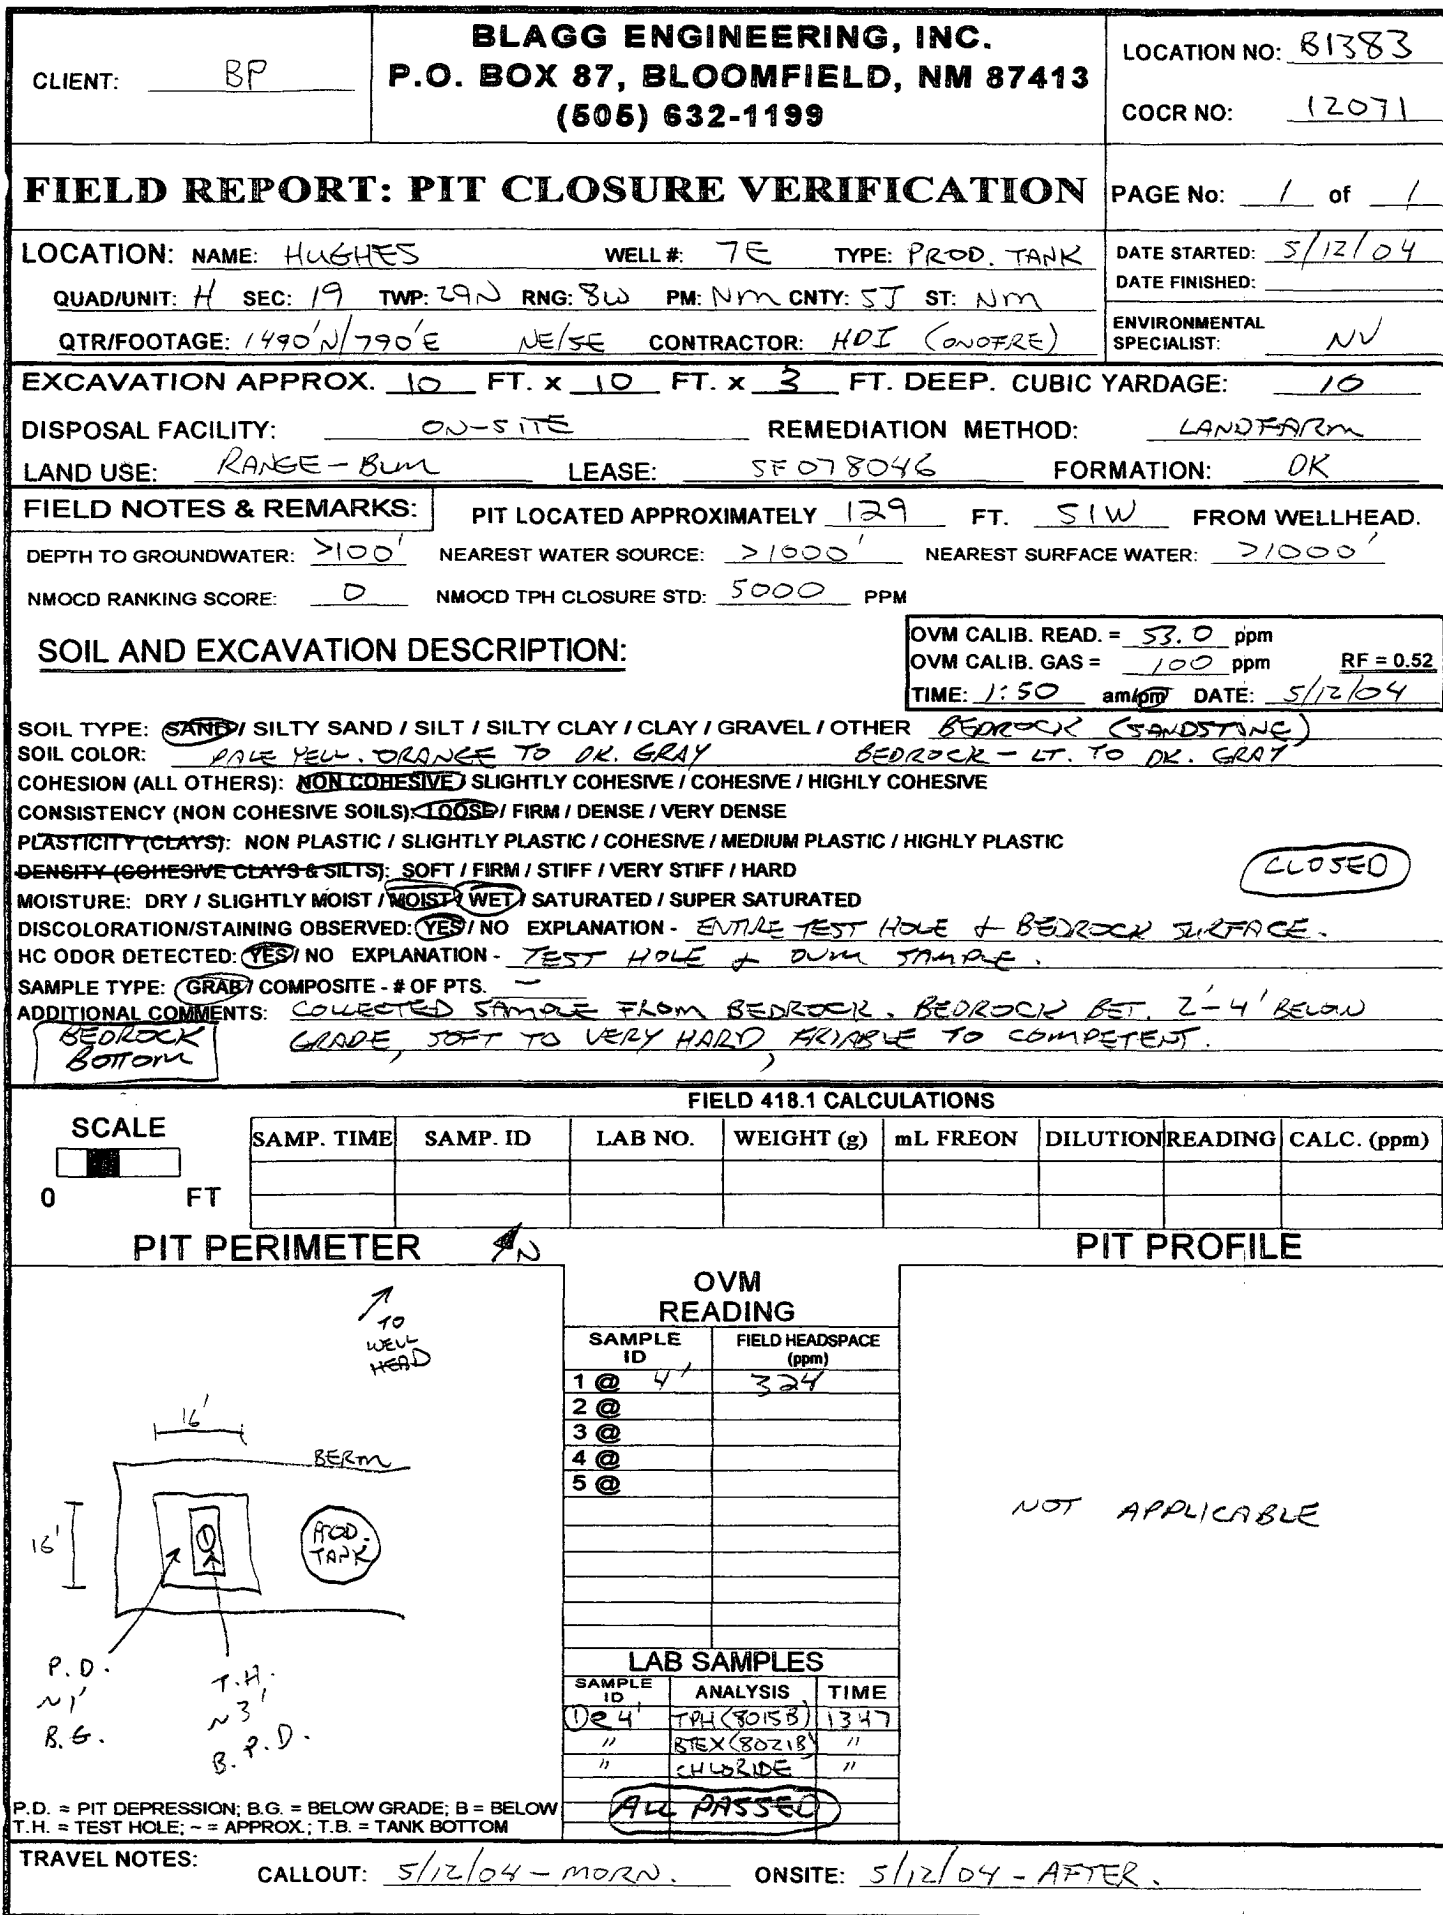 CLIENT: BP
BLAGG ENGINEERING, INC.
P.O. BOX 87, BLOOMFIELD, NM 87413
(505) 632-1199
LOCATION NO: B1383
COCR NO: 12071
FIELD REPORT: PIT CLOSURE VERIFICATION
PAGE No: 1 of 1
LOCATION: NAME: HUGHES WELL #: 7E TYPE: PROD. TANK
QUAD/UNIT: H SEC: 19 TWP: 29N RNG: 8W PM: NM CNTY: SJ ST: NM
QTR/FOOTAGE: 1490'N/790'E NE/SE CONTRACTOR: HDI (ONOFRE)
DATE STARTED: 5/12/04
DATE FINISHED:
ENVIRONMENTAL
SPECIALIST: NV
EXCAVATION APPROX. 10 FT. x 10 FT. x 3 FT. DEEP. CUBIC YARDAGE: 10
DISPOSAL FACILITY: ON-SITE REMEDIATION METHOD: LANDFARM
LAND USE: RANGE - BLM LEASE: SF078046 FORMATION: DK
FIELD NOTES & REMARKS: PIT LOCATED APPROXIMATELY 129 FT. S1W FROM WELLHEAD.
DEPTH TO GROUNDWATER: >100' NEAREST WATER SOURCE: >1000' NEAREST SURFACE WATER: >1000'
NMOCD RANKING SCORE: 0 NMOCD TPH CLOSURE STD: 5000 PPM
SOIL AND EXCAVATION DESCRIPTION:
OVM CALIB. READ. = 53.0 ppm
OVM CALIB. GAS = 100 ppm RF = 0.52
TIME: 1:50 am/pm DATE: 5/12/04
SOIL TYPE: SAND / SILTY SAND / SILT / SILTY CLAY / CLAY / GRAVEL / OTHER BEDROCK (SANDSTONE)
SOIL COLOR: PALE YELL. ORANGE TO DK. GRAY BEDROCK - LT. TO DK. GRAY
COHESION (ALL OTHERS): NON COHESIVE / SLIGHTLY COHESIVE / COHESIVE / HIGHLY COHESIVE
CONSISTENCY (NON COHESIVE SOILS): LOOSE / FIRM / DENSE / VERY DENSE
PLASTICITY (CLAYS): NON PLASTIC / SLIGHTLY PLASTIC / COHESIVE / MEDIUM PLASTIC / HIGHLY PLASTIC
DENSITY (COHESIVE CLAYS & SILTS): SOFT / FIRM / STIFF / VERY STIFF / HARD
CLOSED
MOISTURE: DRY / SLIGHTLY MOIST / MOIST / WET / SATURATED / SUPER SATURATED
DISCOLORATION/STAINING OBSERVED: YES / NO EXPLANATION - ENTIRE TEST HOLE & BEDROCK SURFACE.
HC ODOR DETECTED: YES / NO EXPLANATION - TEST HOLE & OVM SAMPLE.
SAMPLE TYPE: GRAB / COMPOSITE - # OF PTS. —
ADDITIONAL COMMENTS: COLLECTED SAMPLE FROM BEDROCK. BEDROCK BET. 2'-4' BELOW
GRADE, SOFT TO VERY HARD, FRIABLE TO COMPETENT.
BEDROCK
BOTTOM
FIELD 418.1 CALCULATIONS
SCALE
0 FT
SAMP. TIME SAMP. ID LAB NO. WEIGHT (g) mL FREON DILUTION READING CALC. (ppm)
PIT PERIMETER N
PIT PROFILE
TO
WELL
HEAD
16'
BERM
16'
1
PROD.
TANK
P.D.
~1'
B.G.
T.H.
~3'
B.P.D.
P.D. = PIT DEPRESSION; B.G. = BELOW GRADE; B = BELOW
T.H. = TEST HOLE; ~ = APPROX.; T.B. = TANK BOTTOM
OVM
READING
SAMPLE
ID
FIELD HEADSPACE
(ppm)
1 @ 4' 324
2 @
3 @
4 @
5 @
LAB SAMPLES
SAMPLE
ID
ANALYSIS TIME
① @ 4' TPH (8015B) 1347
" BTEX (8021B) "
" CHLORIDE "
ALL PASSED
NOT APPLICABLE
TRAVEL NOTES: CALLOUT: 5/12/04 - MORN. ONSITE: 5/12/04 - AFTER.